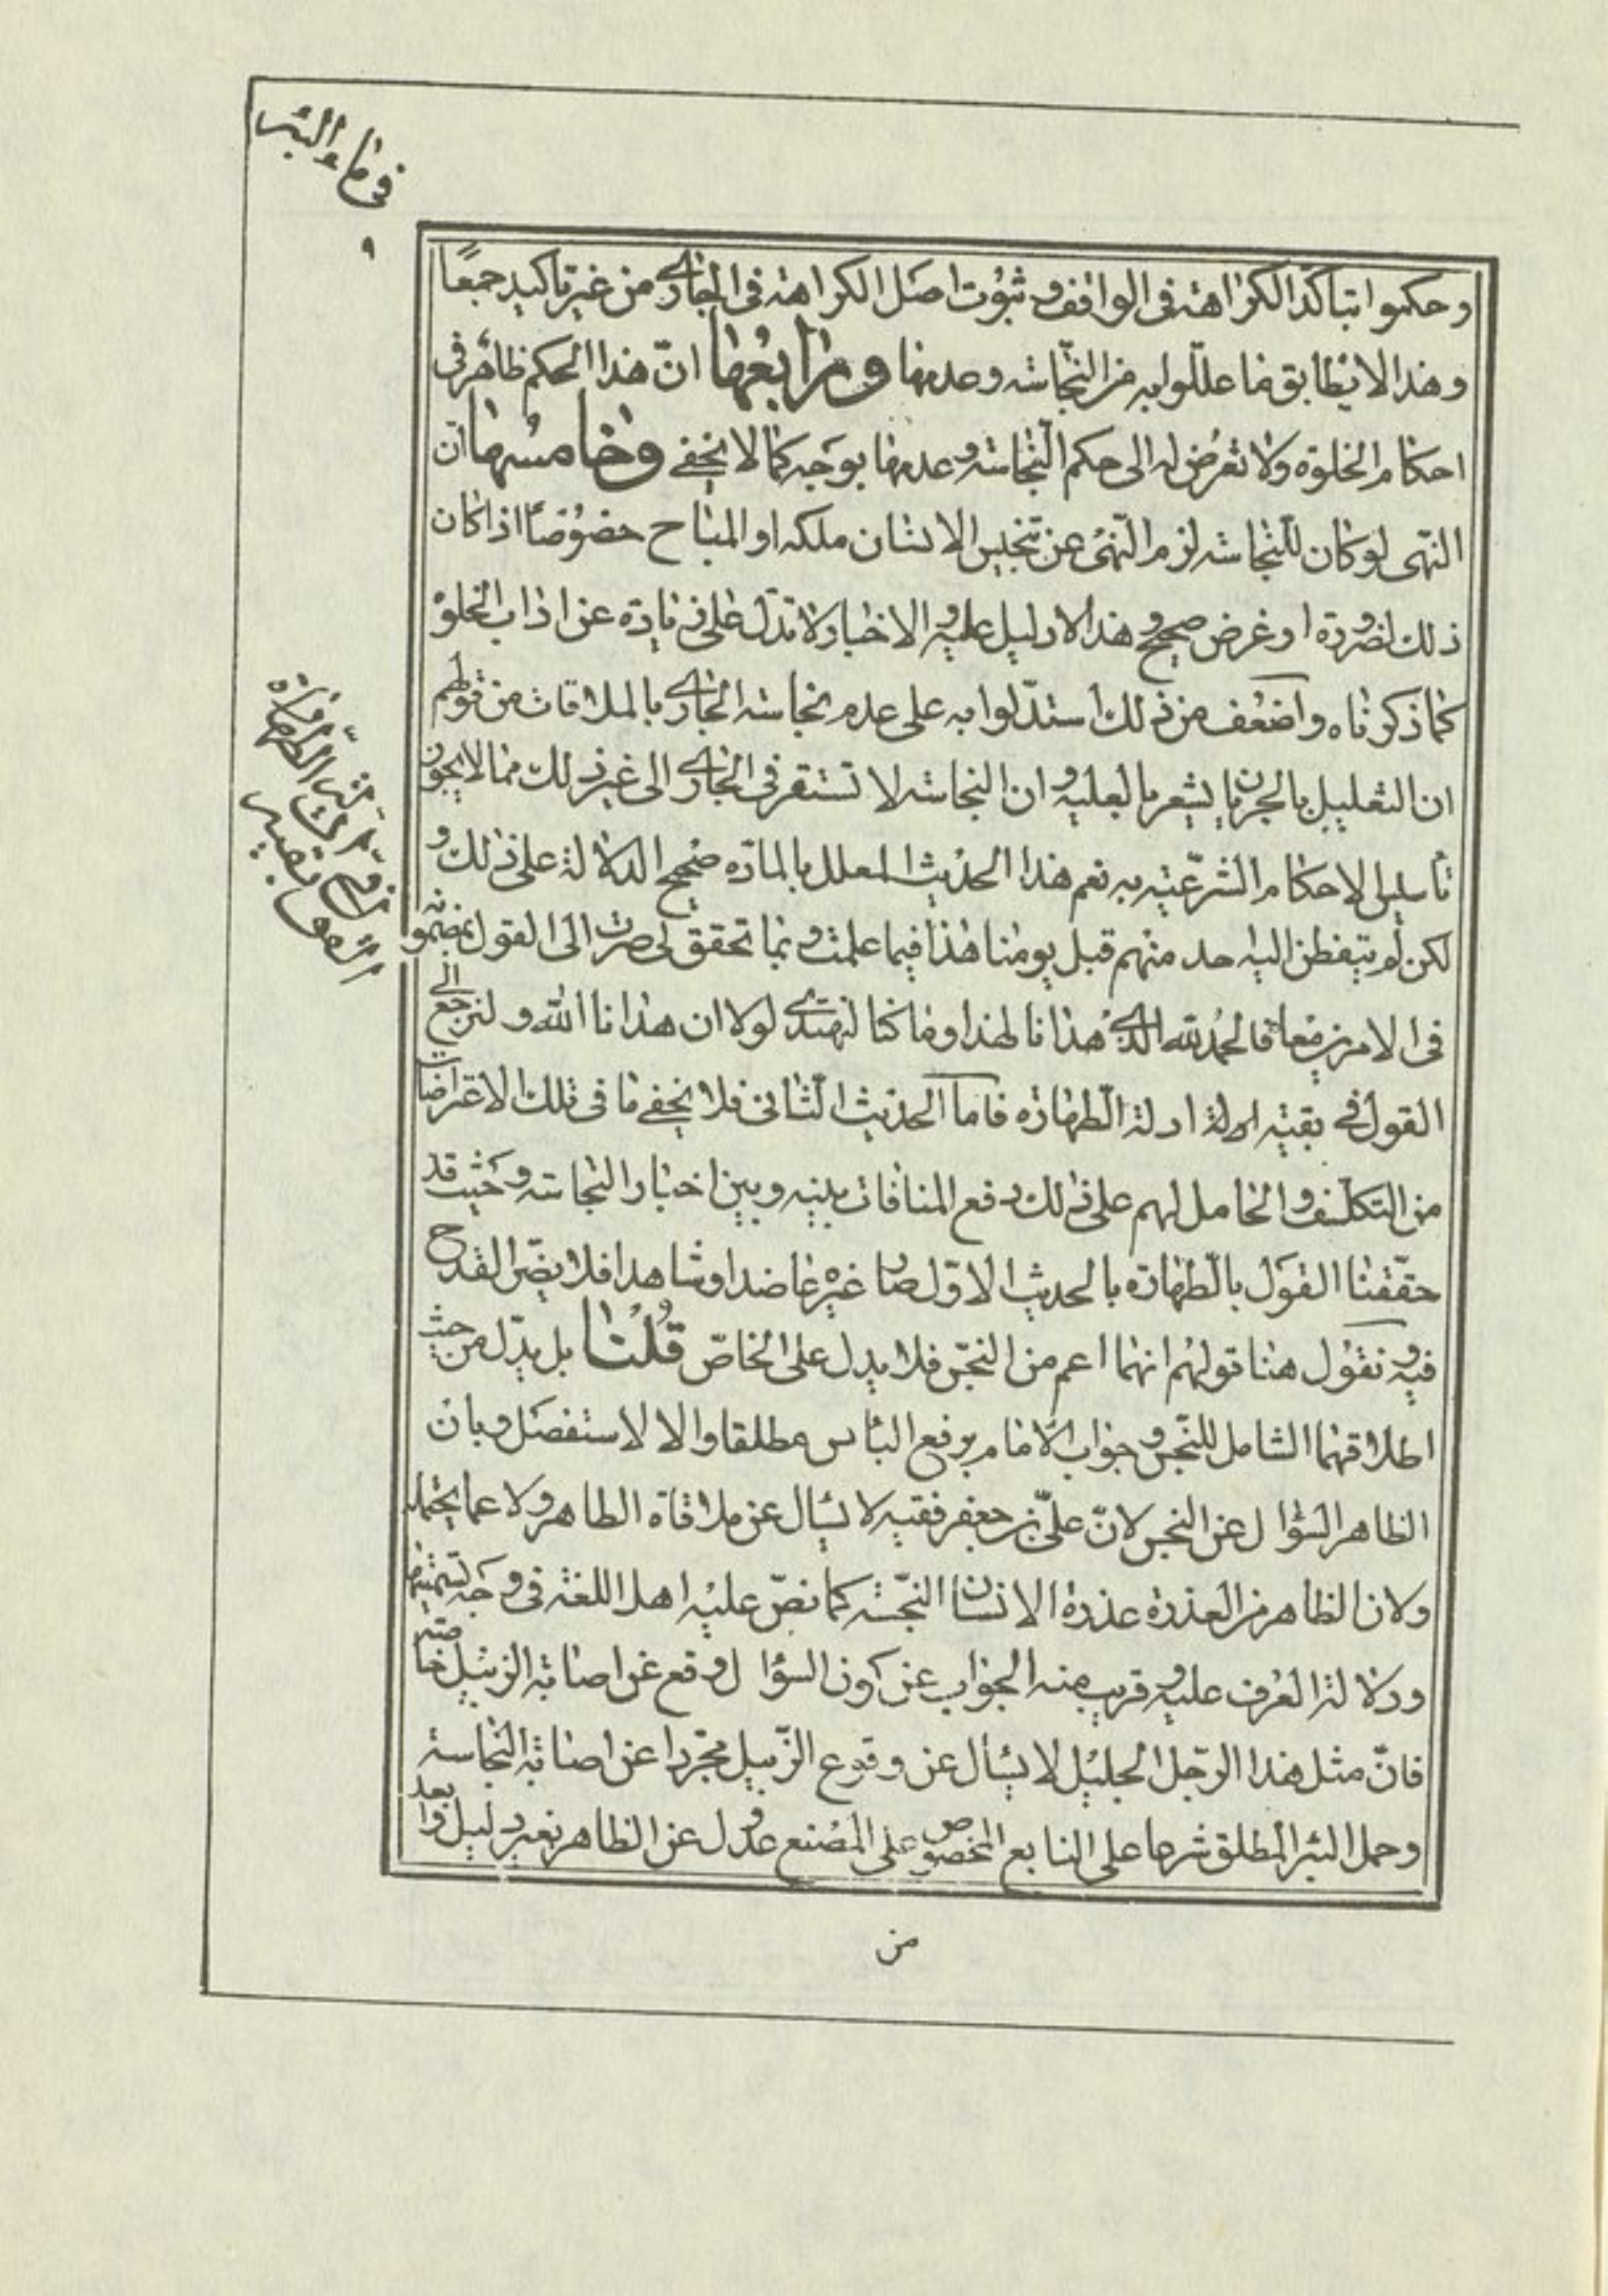 في ماء البئر
٩
وحكموا بتأكد الكراهة في الواقف وثبوت اصل الكراهة في الجاري من غير تأكيد جمعًا
وهذا لا يطابق ما عللوا به من النجاسة وعدمها ورابعها انّ هذا الحكم ظاهر في
احكام الخلوة ولا تعرض له الى حكم النجاسة وعدمها بوجه كما لا يخفى وخامسها ان
النهى لو كان للنجاسة لزم النهى عن تنجيس الانسان ملكه او المباح خصوصًا اذا كان
ذلك لضرورة او غرض صحيح وهذا لا دليل عليه والاخبار لا تدل على زيادة عن اداب الخلوة
كما ذكرناه واضعف من ذلك استدلوا به على عدم نجاسة الجاري بالملاقات من قولهم
ان التعليل بالجريان يشعر بالعلية وان النجاسة لا تستقر في الجاري الى غير ذلك مما لا يجوز
تأسيس الاحكام الشرعية به نعم هذا الحديث المعلل بالمادّة صحيح الدلالة على ذلك و
لكن لم يتفطن اليه احد منهم قبل يومنا هذا فيما علمت وبما تحقق لى صرت الى القول بمضمونه
في الامرين معا فالحمد لله الذي هدانا لهذا وما كنا لنهتدي لولا ان هدانا الله ولنرجع الى
القول في بقية ادلة الطهارة فاما الحديث الثانى فلا يخفى ما في تلك الاعتراضات
من التكلف والحامل لهم على ذلك دفع المنافات بينه وبين اخبار النجاسة وحيث قد
حققنا القول بالطهارة بالحديث الاوّل صار غيره عاضدا وشاهدا فلا يضر القدح
فيه ونقول هنا قولهم انهما اعم من النجس فلا يدل على الخاصّ قلنا بل يدلّ من حيث
اطلاقهما الشامل للنجس وجواب الامام برفع البأس مطلقا والا لاستفصل وبان
الظاهر السؤال عن النجس لانّ علىّ بن جعفر فقيه لا يسأل عن ملاقاة الطاهر ولا عما يحتمله
ولان الظاهر من العذرة عذرة الانسان النجسة كما نصّ عليه اهل اللغة في وجه تسميتها
ودلالة العرف عليه وقريب منه الجواب عن كون السؤال وقع عن اصابة الزنبيل خاصّة
فانّ مثل هذا الرجل الجليل لا يسأل عن وقوع الزّبيل مجرّدا عن اصابة النجاسة
وحمل البئر المطلق شرعا على النابع المخصوص على المصنع عدول عن الظاهر بغير دليل وابعد
من